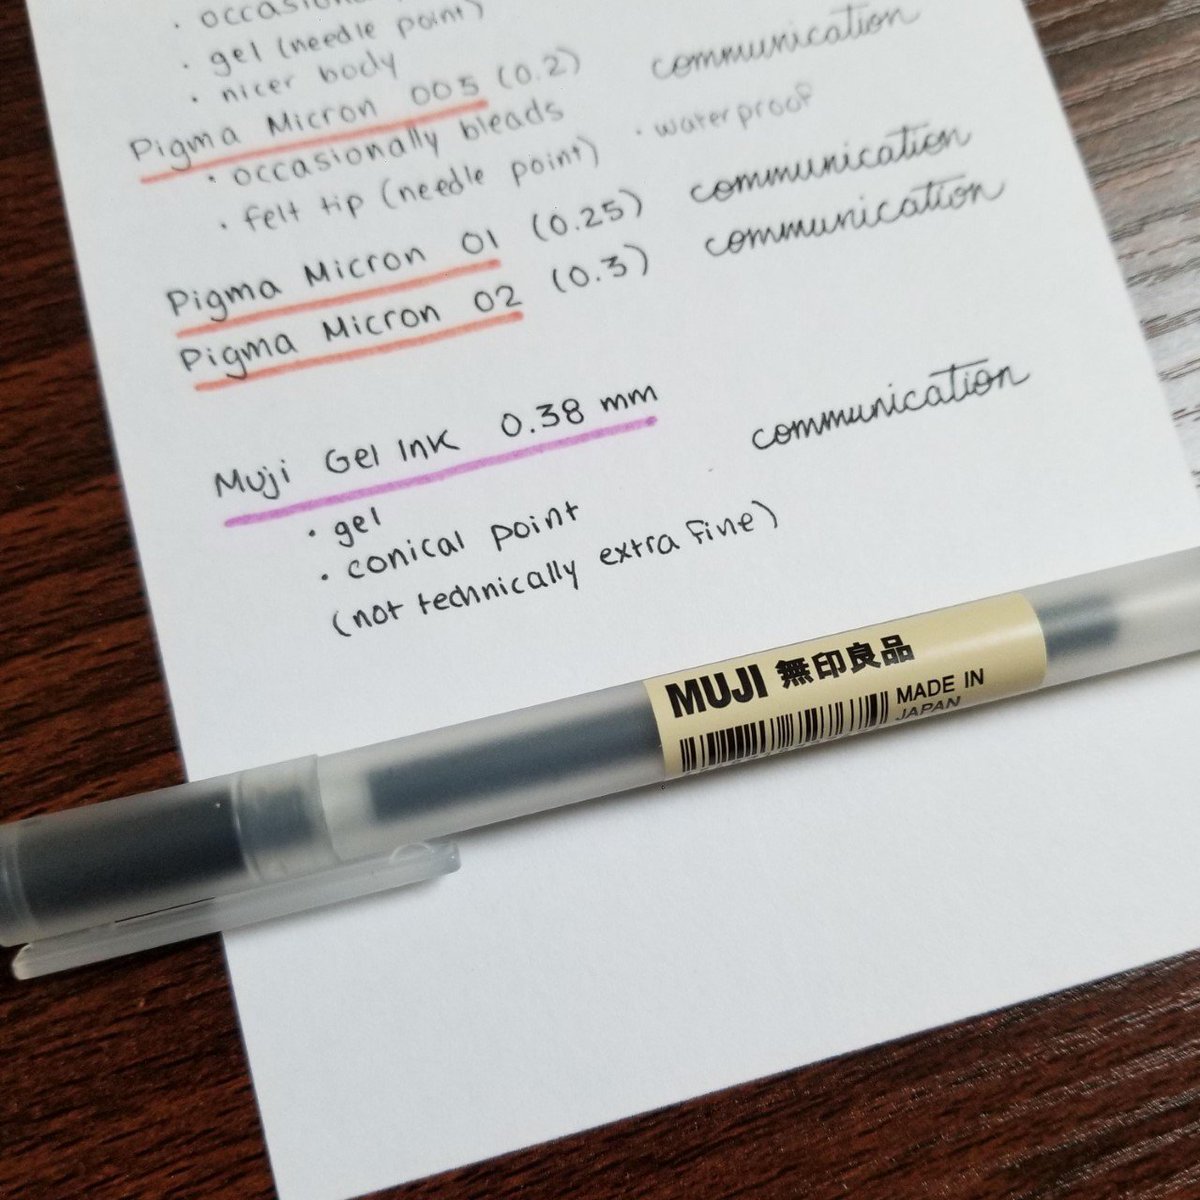 · occasionally
· gel (needle point)
· nicer body
Pigma Micron 005 (0.2) communication
· occasionally bleads · waterproof
· felt tip (needle point)
Pigma Micron 01 (0.25) communication
Pigma Micron 02 (0.3) communication
Muji Gel Ink 0.38 mm communication
· gel
· conical point
(not technically extra fine)
MUJI 無印良品
MADE IN
JAPAN